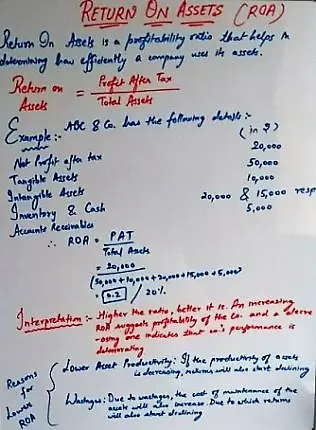 RETURN ON ASSETS (ROA)
Return On Assets is a profitability ratio that helps in
determining how efficiently a company uses its assets.
Return on Assets = Profit After Tax / Total Assets
Example:- ABC & Co. has the following details:-
(in ₹)
Net Profit after tax 20,000
Tangible Assets 50,000
Intangible Assets 10,000
Inventory & Cash 20,000 & 15,000 resp
Accounts Receivables 5,000
∴ ROA = PAT / Total Assets
= 20,000 / (50,000+10,000+20,000+15,000+5,000)
= 0.2 / 20%
Interpretation:- Higher the ratio, better it is. An increasing
ROA suggests profitability of the Co. and a decre
-asing one indicates that co's performance is
deteriorating
Reasons for Lower ROA
Lower Asset Productivity: If the productivity of assets
is decreasing, returns will also start declining
Wastages: Due to wastages, the cost of maintenance of the
assets will also increase. Due to which returns
will also start declining